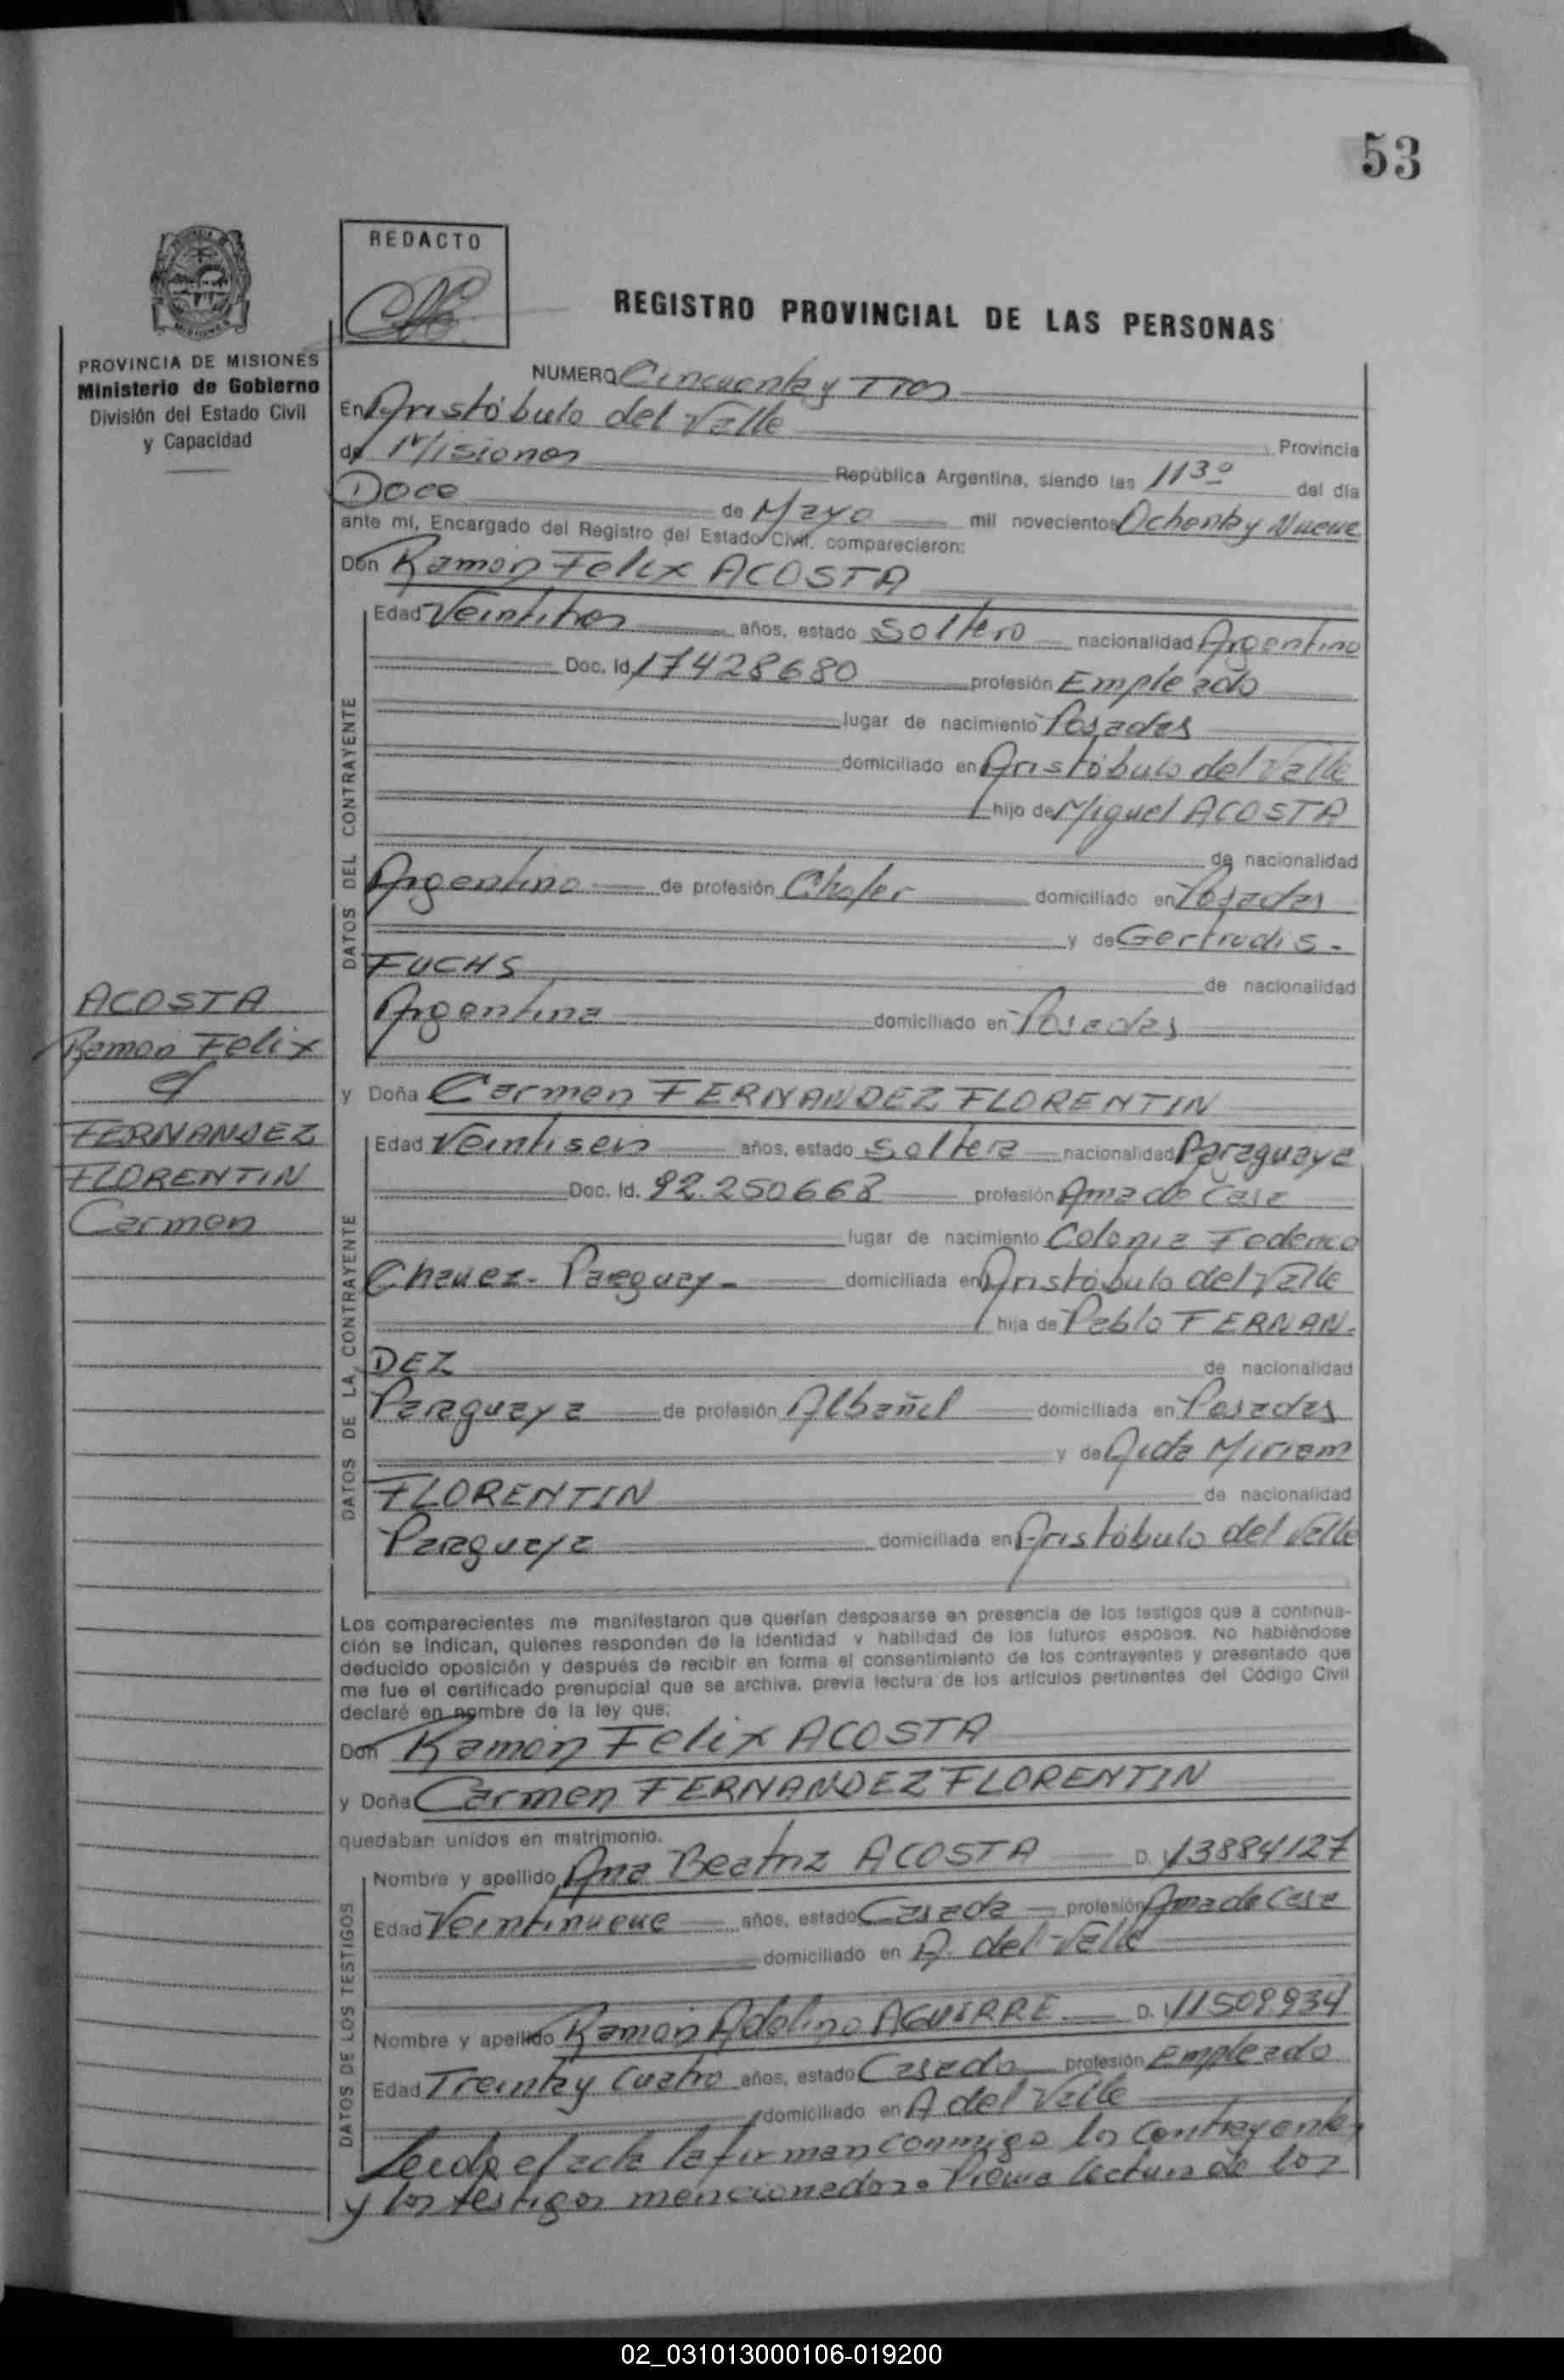 53
REDACTO
REGISTRO PROVINCIAL DE LAS PERSONAS
MISIONES
PROVINCIA DE MISIONES
Ministerio de Gobierno
División del Estado Civil
y Capacidad
NUMERO Cincuenta y Tres
En Aristóbulo del Valle
Provincia
de Misiones República Argentina, siendo las 1130 del día
Doce de Mayo mil novecientos Ochenta y Nueve
ante mí, Encargado del Registro del Estado Civil, comparecieron:
Don Ramon Felix ACOSTA
DATOS DEL CONTRAYENTE
Edad Veintitres años, estado Soltero nacionalidad Argentino
Doc. Id. 17428680 profesión Empleado
lugar de nacimiento Posadas
domiciliado en Aristóbulo del Valle
hijo de Miguel ACOSTA
de nacionalidad
Argentino de profesión Chofer domiciliado en Posadas
y de Gertrudis-
FUCHS
de nacionalidad
Argentina domiciliado en Posadas
ACOSTA
Ramon Felix
c/
FERNANDEZ
FLORENTIN
Carmen
y Doña Carmen FERNANDEZ FLORENTIN
DATOS DE LA CONTRAYENTE
Edad Veintiseis años, estado Soltera nacionalidad Paraguaya
Doc. Id. 92.250668 profesión Ama de Casa
lugar de nacimiento Colonia Federico
Chavez- Paraguay- domiciliada en Aristóbulo del Valle
hija de Pablo FERNAN-
DEZ de nacionalidad
Paraguaya de profesión Albañil domiciliada en Posadas
y de Aida Miriam
FLORENTIN de nacionalidad
Paraguaya domiciliada en Aristóbulo del Valle
Los comparecientes me manifestaron que querían desposarse en presencia de los testigos que a continua-
ción se indican, quienes responden de la identidad y habilidad de los futuros esposos. No habiéndose
deducido oposición y después de recibir en forma el consentimiento de los contrayentes y presentado que
me fue el certificado prenupcial que se archiva, previa lectura de los artículos pertinentes del Código Civil
declaré en nombre de la ley que:
Don Ramon Felix ACOSTA
y Doña Carmen FERNANDEZ FLORENTIN
quedaban unidos en matrimonio.
DATOS DE LOS TESTIGOS
Nombre y apellido Ana Beatriz ACOSTA D. I. 13884127
Edad Veintinueve años, estado Casada profesión Ama de Casa
domiciliado en A. del Valle
Nombre y apellido Ramon Adelino AGUIRRE D. I. 11509934
Edad Treinta y Cuatro años, estado Casado profesión Empleado
domiciliado en A del Valle
Leida el acta la firman conmigo los contrayentes
y los testigos mencionados. Previa lectura de los
02_031013000106-019200